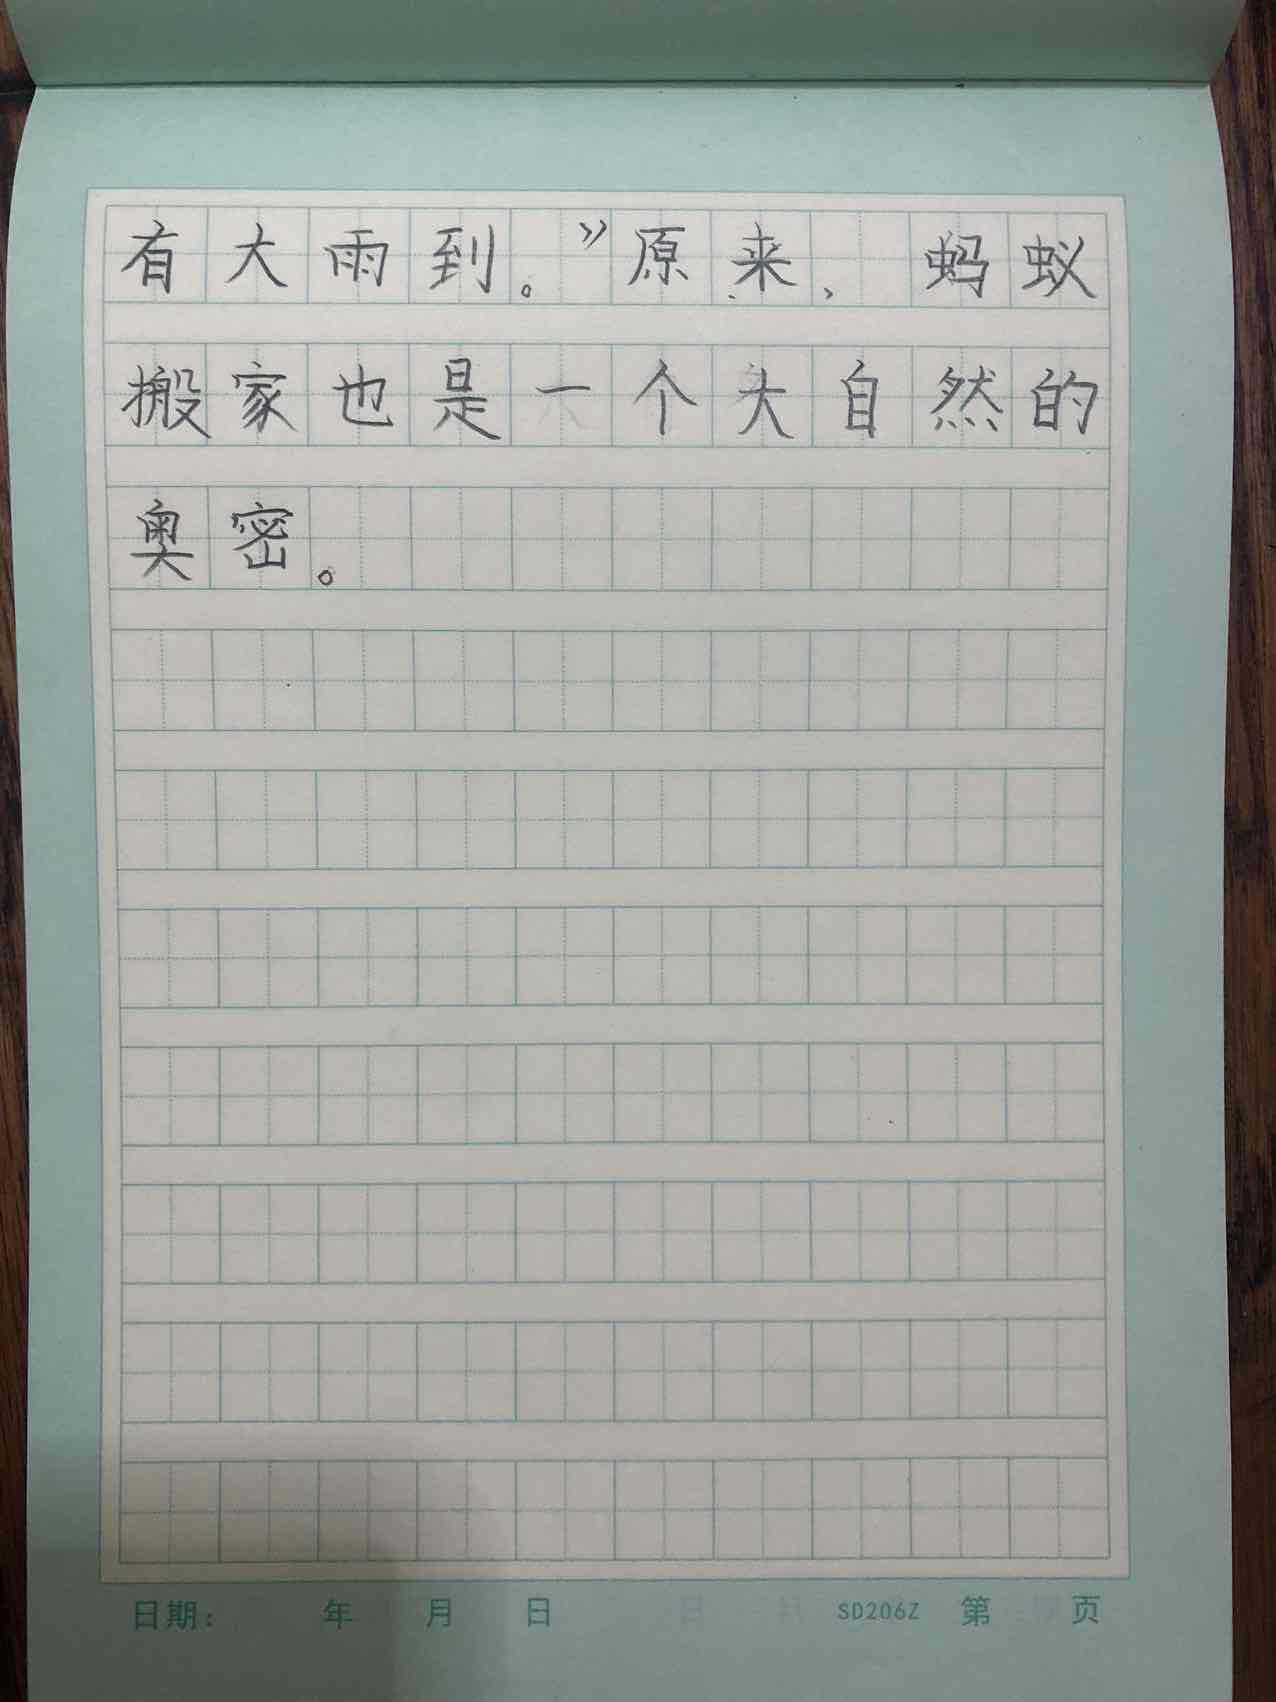 有大雨到。”原来，蚂蚁
搬家也是一个大自然的
奥密。
日期: 年 月 日 SD206Z 第 页